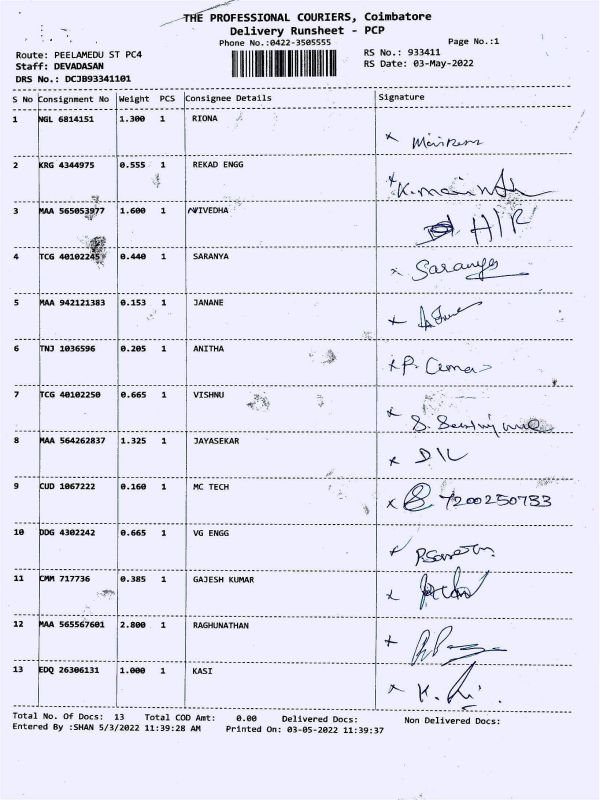 THE PROFESSIONAL COURIERS, Coimbatore
Delivery Runsheet - PCP
Phone No.:0422-3505555
Page No.:1
Route: PEELAMEDU ST PC4
RS No.: 933411
Staff: DEVADASAN
RS Date: 03-May-2022
DRS No.: DCJB93341101
S No Consignment No Weight PCS Consignee Details Signature
1 NGL 6814151 1.300 1 RIONA
2 KRG 4344975 0.555 1 REKAD ENGG
3 MAA 565053977 1.600 1 NIVEDHA
H/R
4 TCG 40102245 0.440 1 SARANYA
x Saranya
5 MAA 942121383 0.153 1 JANANE
6 TNJ 1036596 0.205 1 ANITHA
7 TCG 40102250 0.665 1 VISHNU
8 MAA 564262837 1.325 1 JAYASEKAR
x D/L
9 CUD 1067222 0.160 1 MC TECH
x 7200250733
10 DDG 4302242 0.665 1 VG ENGG
11 CMM 717736 0.385 1 GAJESH KUMAR
12 MAA 565567601 2.800 1 RAGHUNATHAN
13 EDQ 26306131 1.000 1 KASI
Total No. Of Docs: 13 Total COD Amt: 0.00 Delivered Docs: Non Delivered Docs:
Entered By :SHAN 5/3/2022 11:39:28 AM Printed On: 03-05-2022 11:39:37